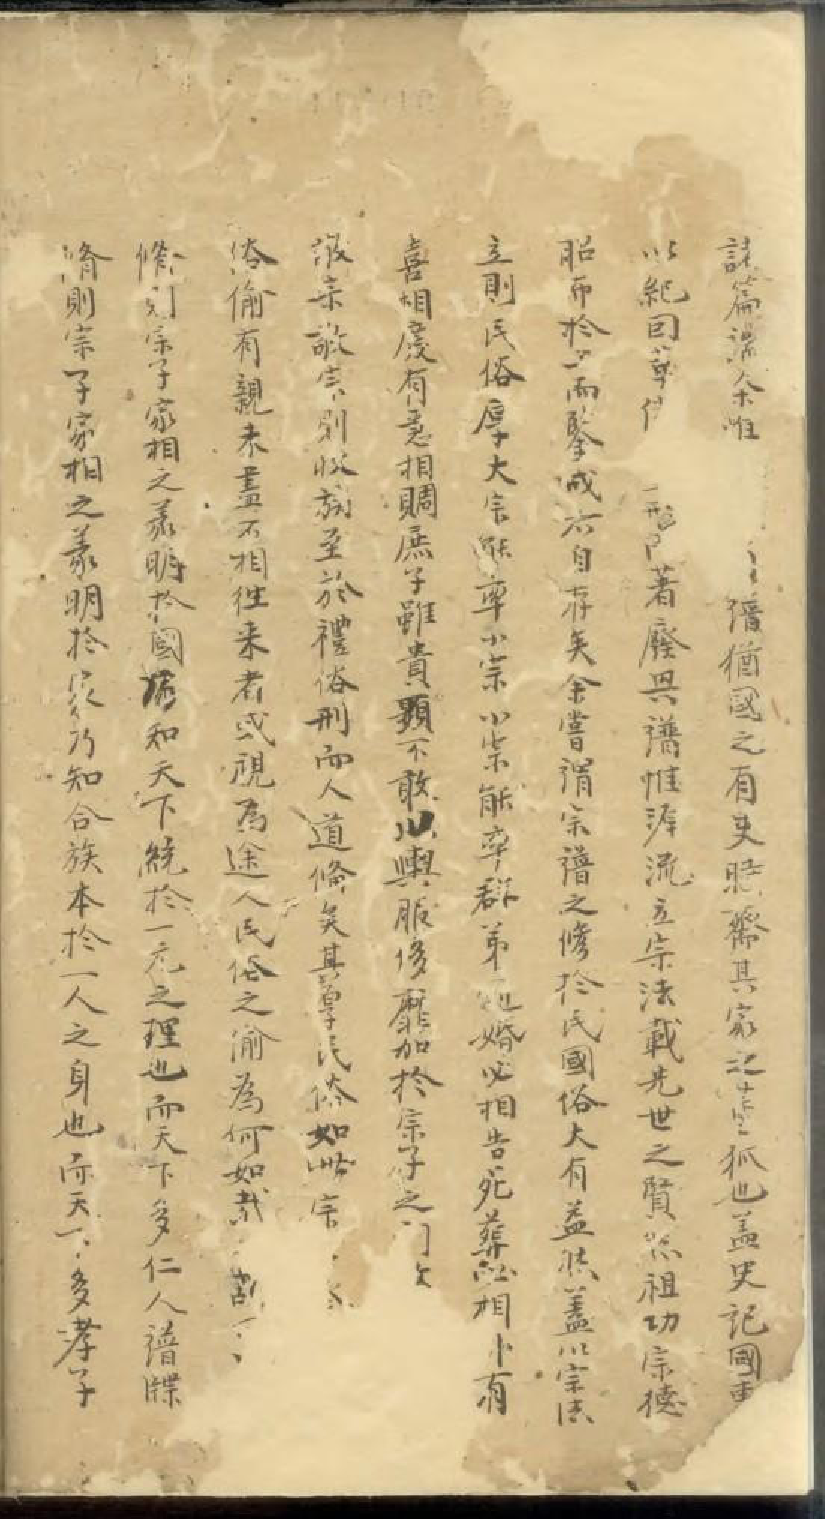 誌篇譔余唯譜猶國之有史照齋其家之董狐也蓋史記國事
以紀因革著廢興譜惟溯流立宗法載先世之賢祖功宗德
昭而於以而鑒戒亦自存矣余嘗謂宗譜之修於民國俗大有益焉蓋以宗法
立則民俗厚大宗能率小宗小宗能率群弟也婚必相告死葬必相卜有
喜相慶有急相賙庶子雖貴顯不敢以輿服侈靡加於宗子之門
誠宗敬宗則收族至於禮俗刑而人道脩矣其尊民俗如此宗
俗偷有親未盡不相往来者或視為途人民俗之渝為何如哉
脩則宗子家相之義明於國乃知天下統於一元之理也而天下多仁人譜牒
脩則宗子家相之義明於家乃知合族本於一人之身也而天下多孝子